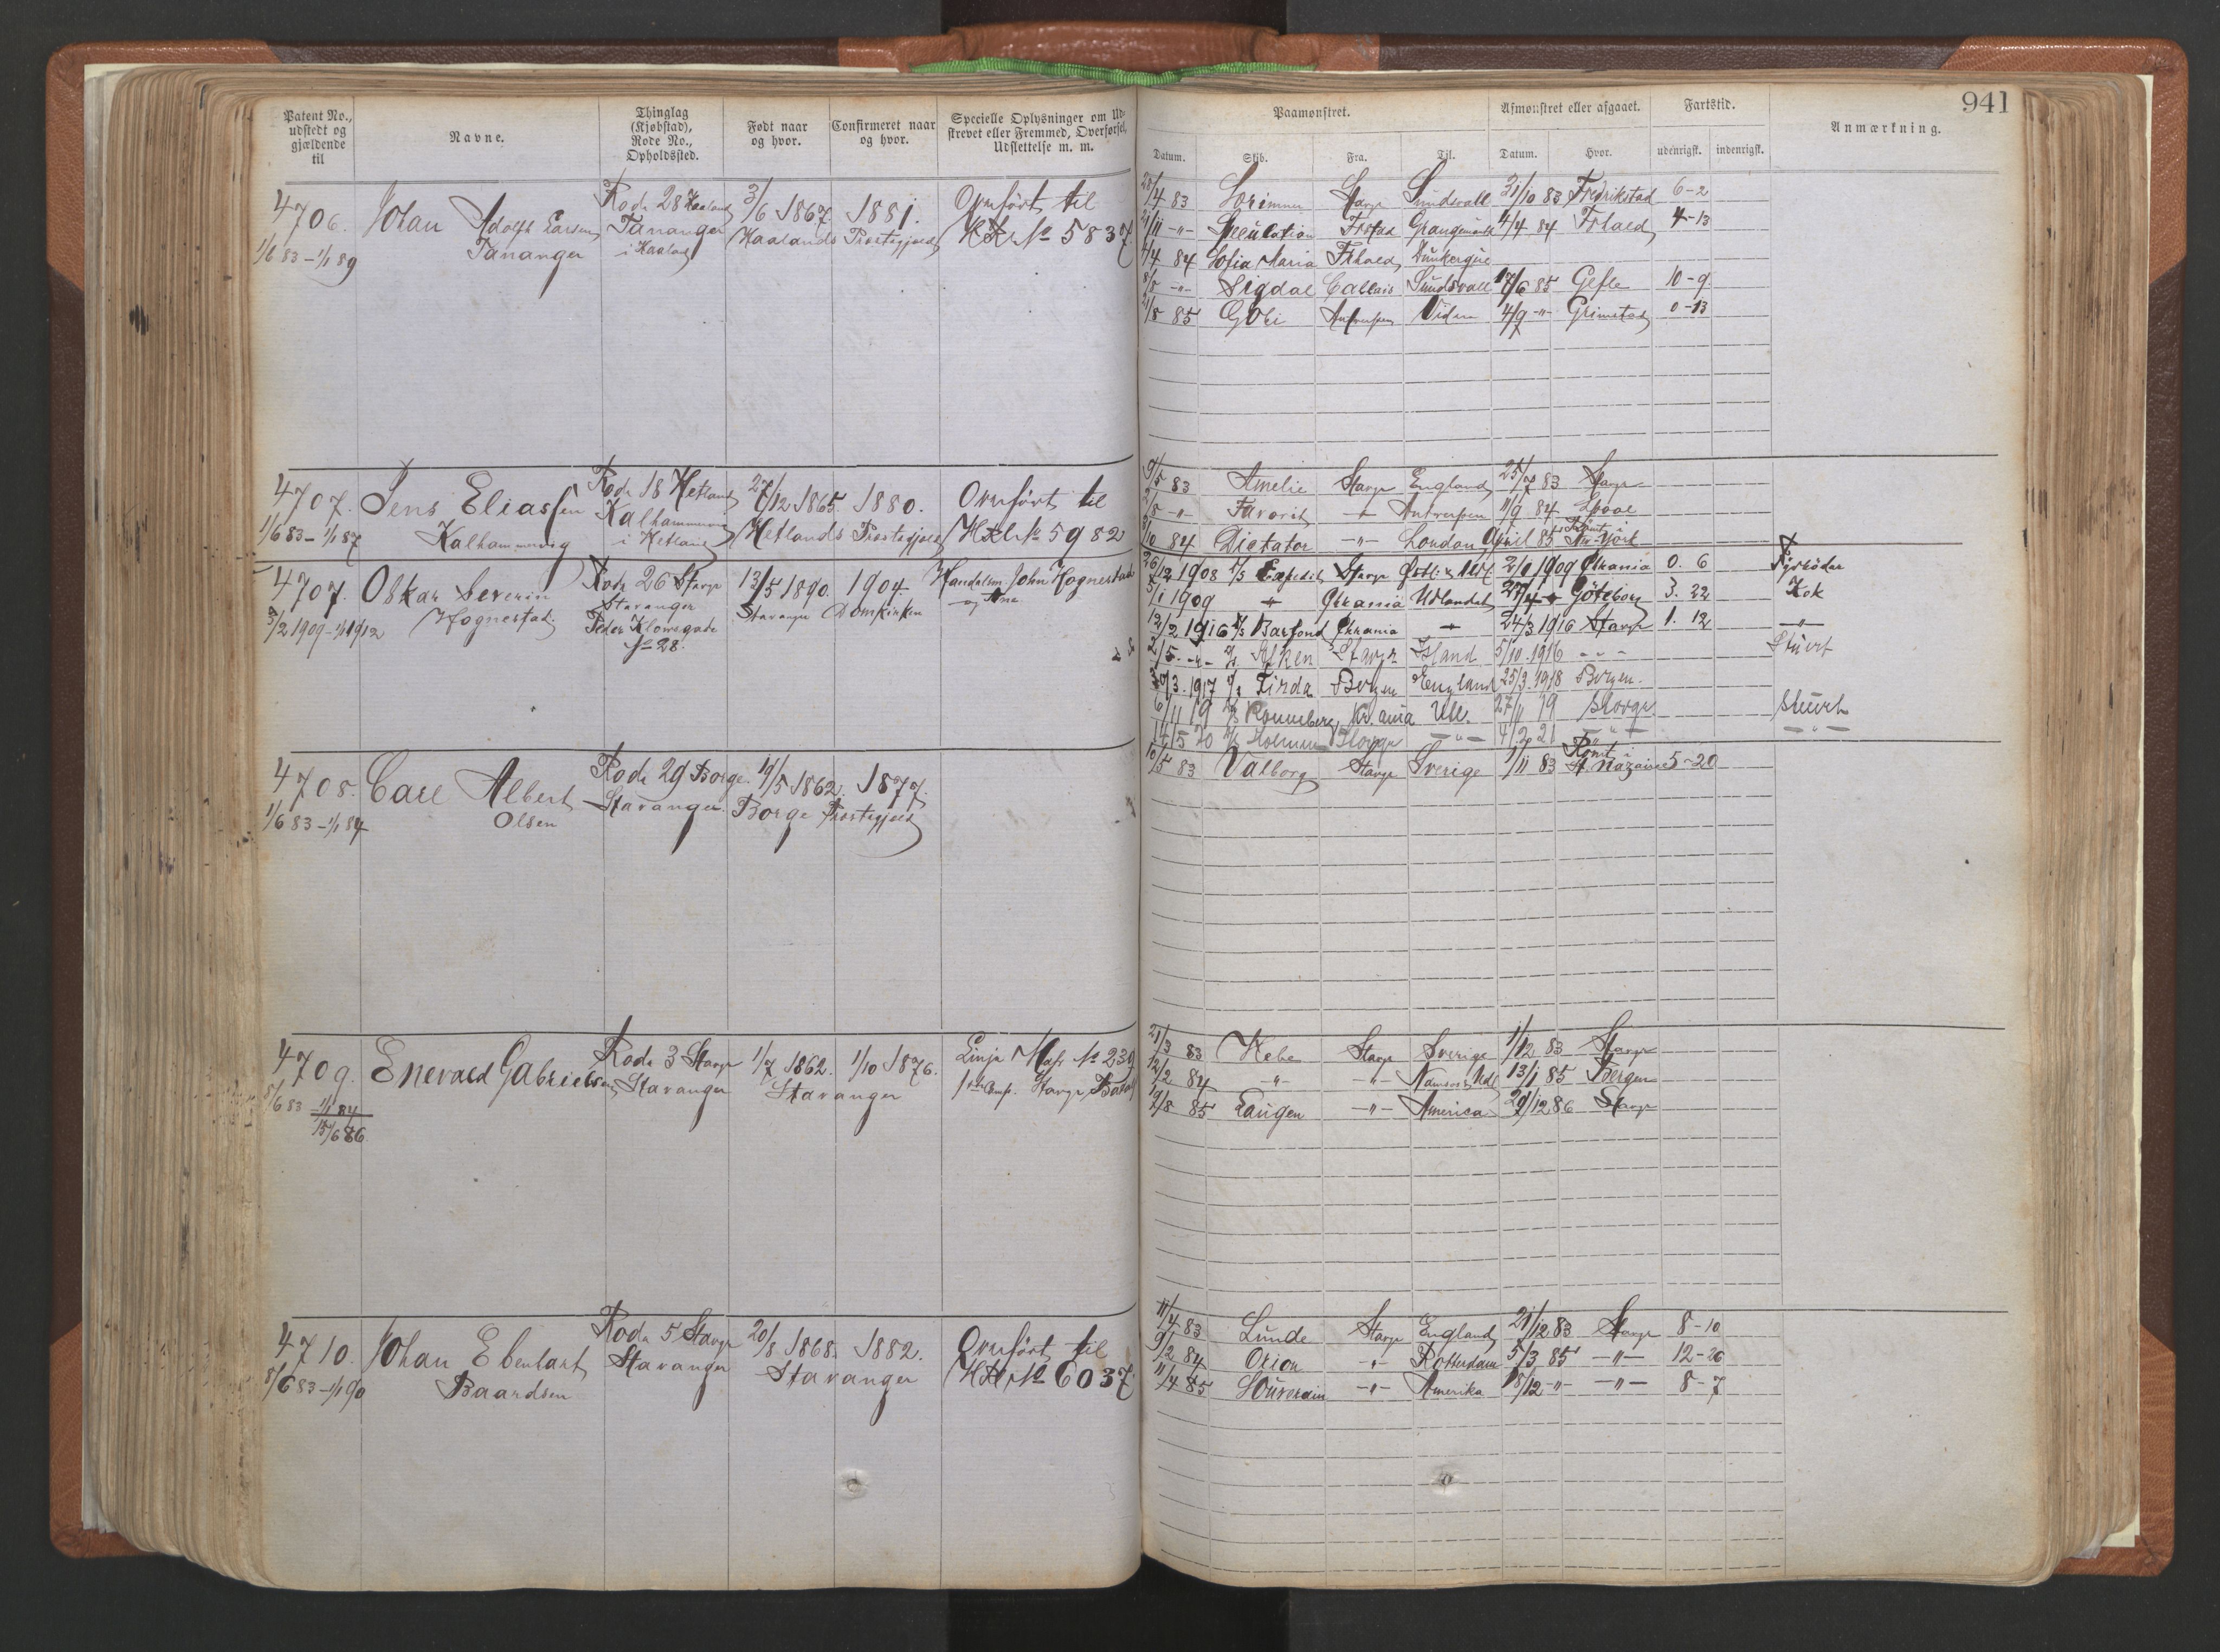 941
Patent No., udstedt og gjældende til
Navne.
Thinglag (Kjøbstad), Rode No., Opholdssted.
Født naar og hvor.
Confirmeret naar og hvor.
Specielle Oplysninger om Udstrevet eller Fremmed, Overførsel, Udslettelse m. m.
Paamønstret.
Afmønstret eller afgaaet.
Fartstid.
Anmærkning.
Datum. Skib. Fra. Til. Datum. Hvor. udenrigsk. indenrigsk.
4706. Johan Adolf Larsen Rode 28 Haaland 3/6 1867. 1881. Overført til
1/6 83 – 1/1 89 Tananger Tananger i Haaland Haalands Præstegjæld HR No 5837.
28/4 83 Sorimner Stavgr Sundsvall 31/10 83 Fredrikstad 6-2
21/11 -"- Speculation Frstad Grangemouth 4/4 84 Frhald 4-13
4/4 84 Sofia Maria Frhald Dunkerque
8/5 -"- Sigdal Callais Sundsvall 17/6 85 Gefle 10-9.
21/8 85 Gobi Antverpen 4/9 -"- Grimstad 0-13
4707. Jens Eliassen Rode 18 Hetland 27/12 1865. 1880. Overført til
1/6 83 – 1/1 87 Kalhammervig Kalhammervig i Hetland Hetlands Præstegjæld No 5982
9/5 83 Amelie Stavgr England 25/7 83 Stavgr
2/8 -"- Favorit -"- Antverpen 11/9 84 Lpool
3/10 84 Dictator -"- London April 85 Rømt New-York
4707. Oskar Severin Rode 26 Stavgr 13/5 1890. 1904. Handelsm. John Hognestad
3/2 1909 – 1/1 1912 Hognestad. Stavanger Stavanger Domkirken og Ane
Peder Klowsgade No 28.
26/12 1908 D/S Expedit Stavgr 2/1 1909 Chrania 0. 6 Fyrbøder
5/1 1909 -"- Chrania Udlandet 27/4 -"- Göteborg 3. 22 Kok
12/2 1916 D/S Barfond Chrania -"- 24/3 1916 Stavgr 1. 12 -"-
2/5 -"- Alken Stavgr Island 5/10 1916 -"- Stuert
3/3 1917 Firda Bergen England 25/3 1918 Bergen.
6/11 19 Ronneberg Kr.ania Udl. 27/11 19 Stavgr. Stuert
14/5 20 Holmen Stavgr -"- 4/2 21 -"- -"-
4708. Carl Albert Rode 29 Borge. 19/5 1862. 1877.
1/6 83 – 1/1 84 Olsen Stavanger. Borge Præstegjæld
10/5 83 Valborg Stavgr Sverige 1/11 83 Rømt i St. Nazaire 5-20
4709. Enevald Gabrielsen Rode 3 Stavgr 1/7 1862. 1/10 1876. Linje No 239
8/6 83 – 1/1 84 Stavanger Stavanger Stavgr
15/6 86.
21/3 83 Hebe Stavgr Sverige 1/12 83 Stavgr
12/2 84 -"- -"- Namsos Udl 13/1 85 Bergen
19/8 85 Laugen -"- America 29/12 86 Stavgr
4710. Johan Ebenhart Rode 5 Stavgr 20/8 1868. 1882. Overført til
8/6 83 – 1/1 90 Baardsen Stavanger Stavanger No 6037.
11/4 83 Lunde Stavgr England 21/12 83 Stavgr 8-10
9/2 84 Orion -"- Rotterdam 5/3 85 -"- 12-26
11/4 85 Souverain -"- Amerika 18/12 -"- -"- 8-7